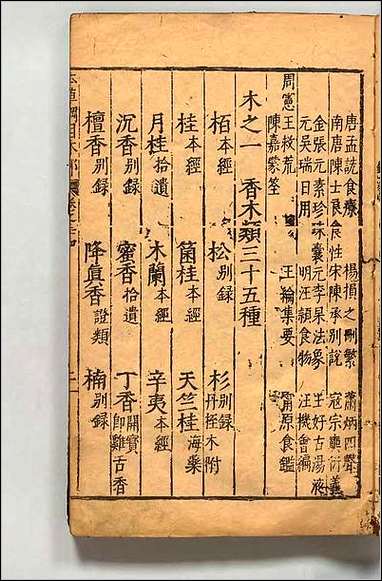 唐孟詵食療　楊損之刪繁　蕭炳四聲
南唐陳士良食性　宋陳承別說　寇宗奭衍義
金張元素珍珠囊　元李杲法象　王好古湯液
元吳瑞日用　明汪穎食物　汪機會編
周憲王救荒　王綸集要　甯原食鑑
陳嘉謨蒙筌
木之一　香木類三十五種
柏本經　松別錄　杉別錄 丹桎木附
桂本經　箘桂本經　天竺桂海藥
月桂拾遺　木蘭本經　辛夷本經
沉香別錄　蜜香拾遺　丁香開寶 即雞舌香
檀香別錄　降真香證類　楠別錄
本草綱目木部　卷之三十四　二